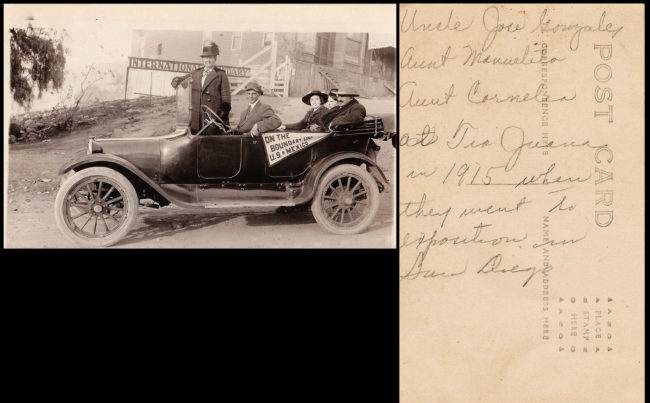 INTERNATIONAL BOUNDARY
ON THE
BOUNDARY LINE
U.S. & MEXICO
Uncle Jose Gonzales
Aunt Manuelita
Aunt Cornelia
at Tia Juana
in 1915 when
they went to
exposition in
San Diego
POST CARD
CORRESPONDENCE HERE
NAME AND ADDRESS HERE
AZO
PLACE
STAMP
HERE
AZO